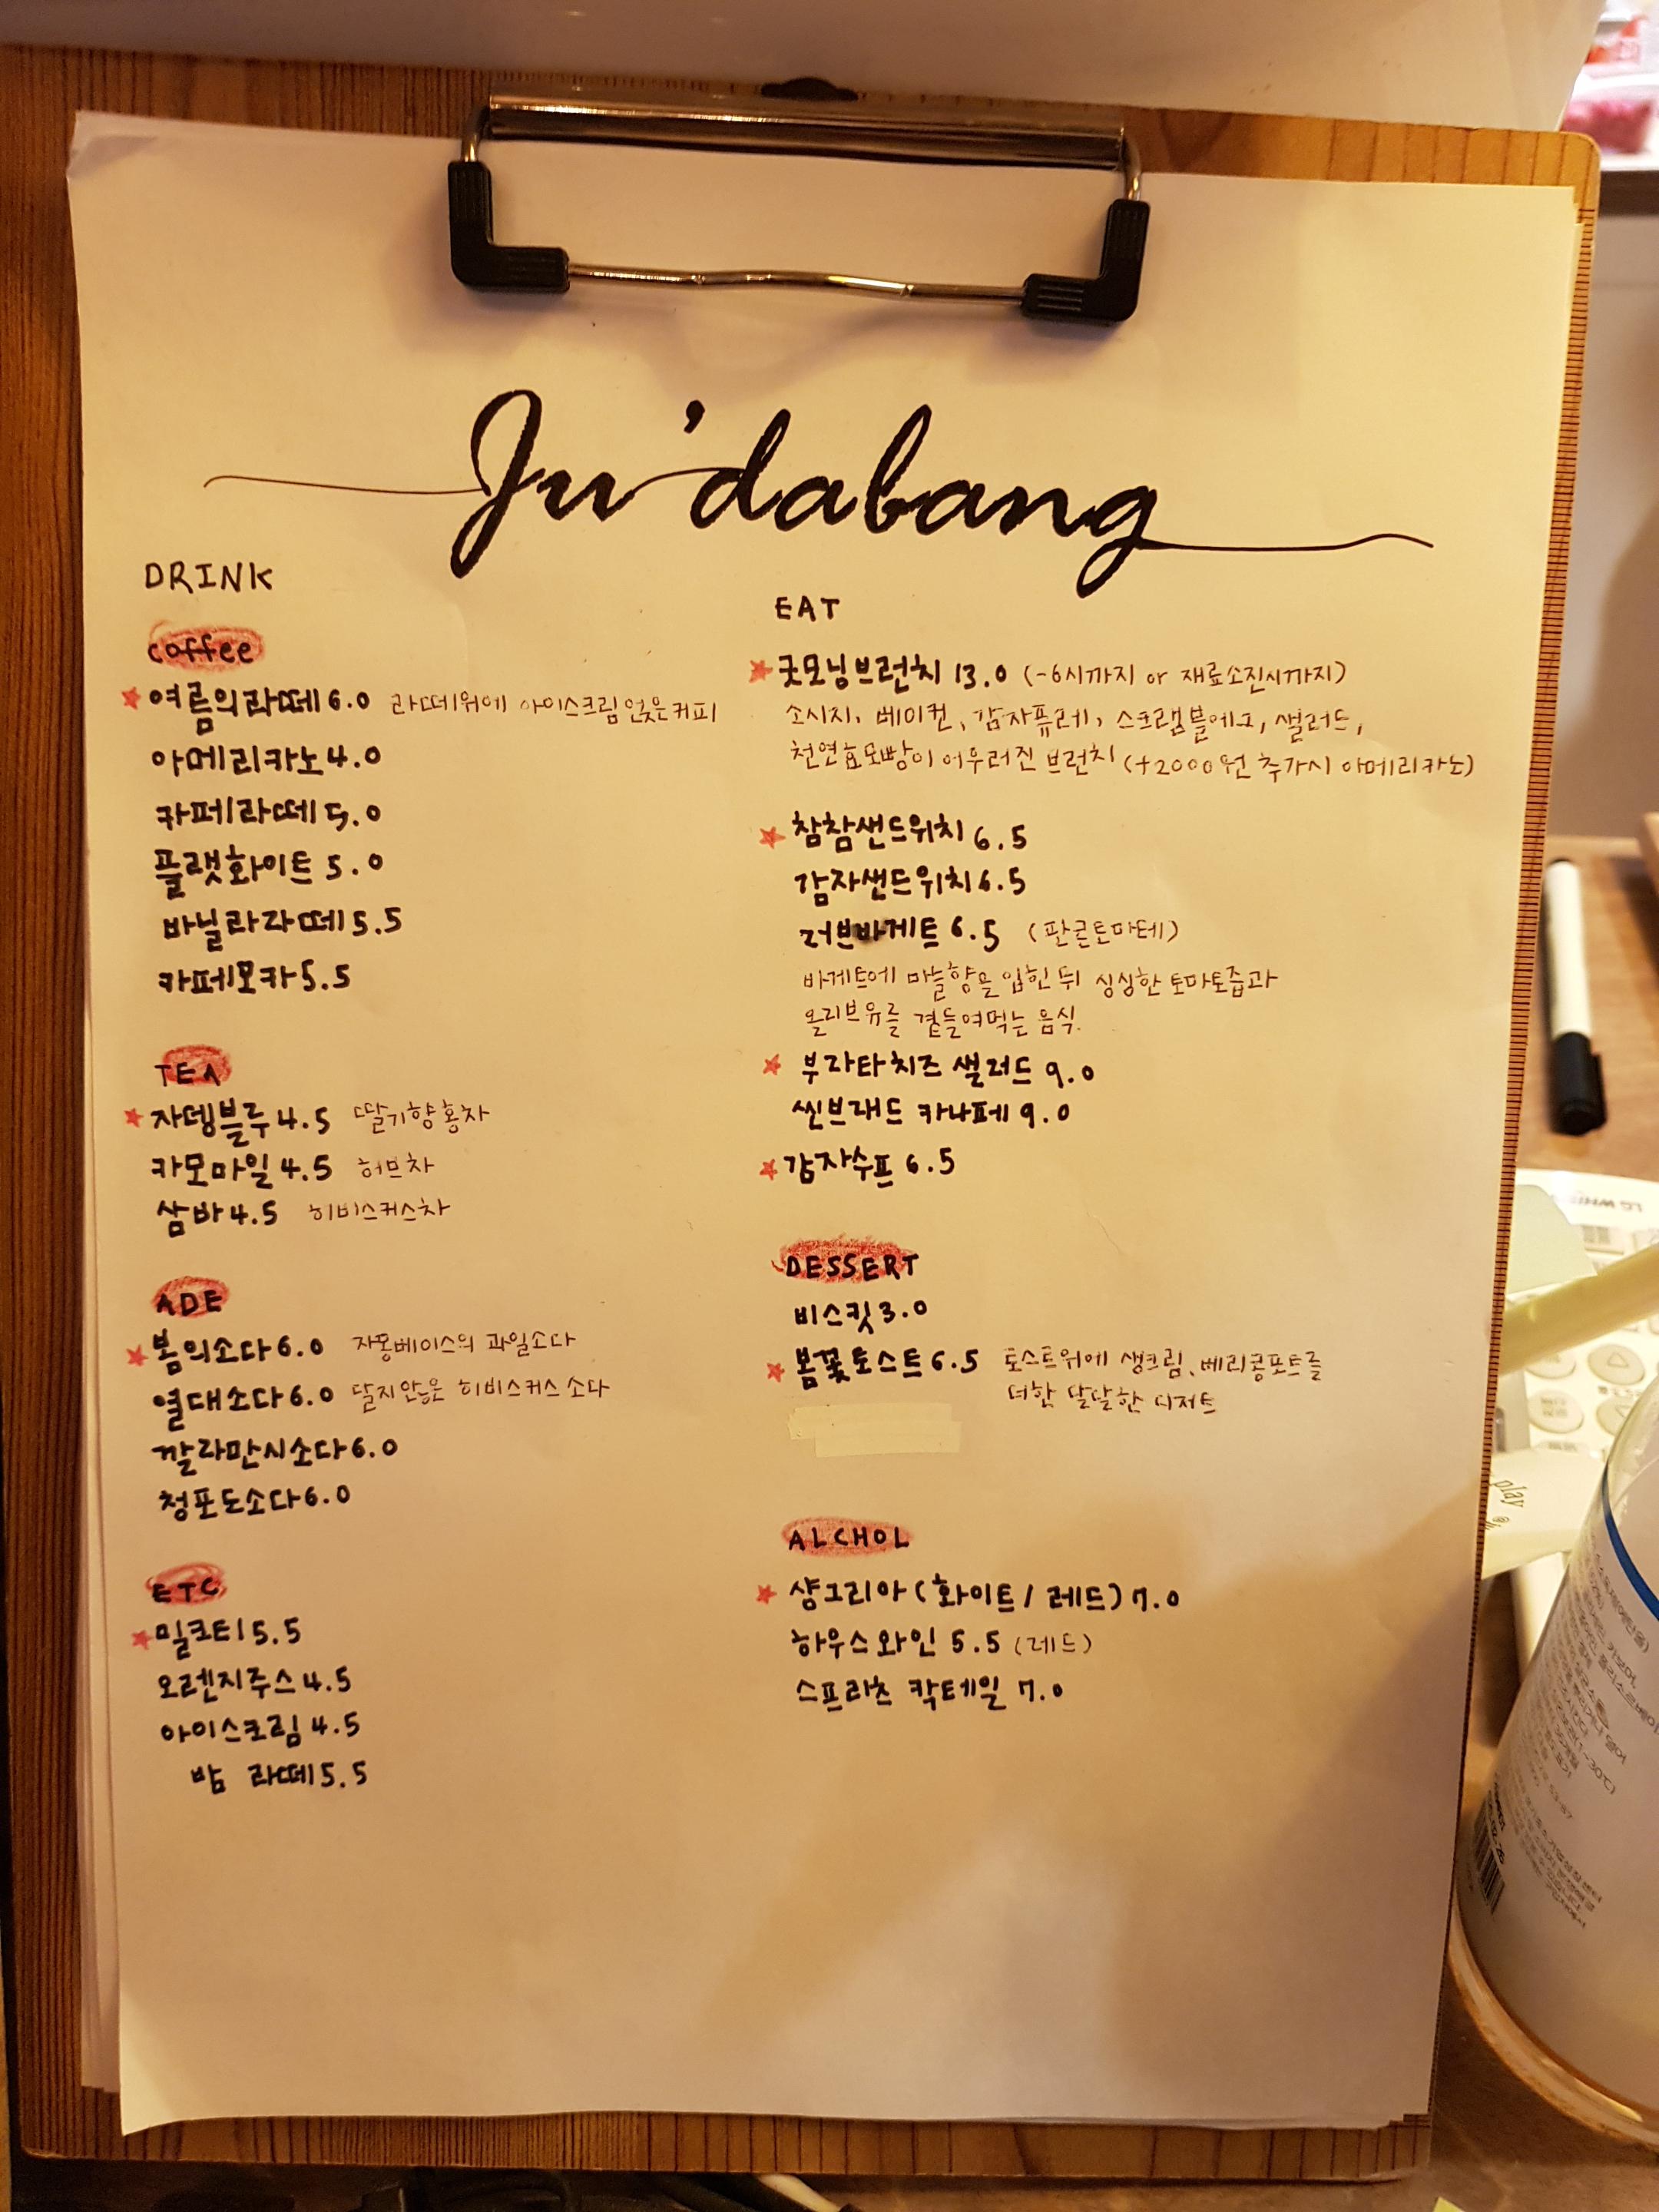 Ju'dabang
DRINK
coffee
여름의라떼 6.0 라떼위에 아이스크림얹은커피
아메리카노 4.0
카페라떼 5.0
플랫화이트 5.0
바닐라라떼 5.5
카페모카 5.5
TEA
자뎅블루 4.5 딸기향홍차
카모마일 4.5 허브차
삼바 4.5 히비스커스차
ADE
봄의소다 6.0 자몽베이스의 과일소다
열대소다 6.0 달지않은 히비스커스 소다
깔라만시소다 6.0
청포도소다 6.0
ETC
밀크티 5.5
오렌지주스 4.5
아이스크림 4.5
밤 라떼 5.5
EAT
굿모닝브런치 13.0 (-6시까지 or 재료소진시까지)
소시지, 베이컨, 감자퓨레, 스크램블에그, 샐러드,
천연효모빵이 어우러진 브런치 (+2000원 추가시 아메리카노)
참참샌드위치 6.5
감자샌드위치 6.5
러브바게트 6.5 (판콘토마테)
바게트에 마늘향을 입힌 뒤 싱싱한 토마토즙과
올리브유를 곁들여먹는 음식.
부라타치즈 샐러드 9.0
씬브래드 카나페 9.0
감자수프 6.5
DESSERT
비스킷 3.0
봄꽃토스트 6.5 토스트위에 생크림, 베리콩포트를
더한 달달한 디저트
ALCHOL
샹그리아 (화이트 / 레드) 7.0
하우스 와인 5.5 (레드)
스프리츠 칵테일 7.0
play